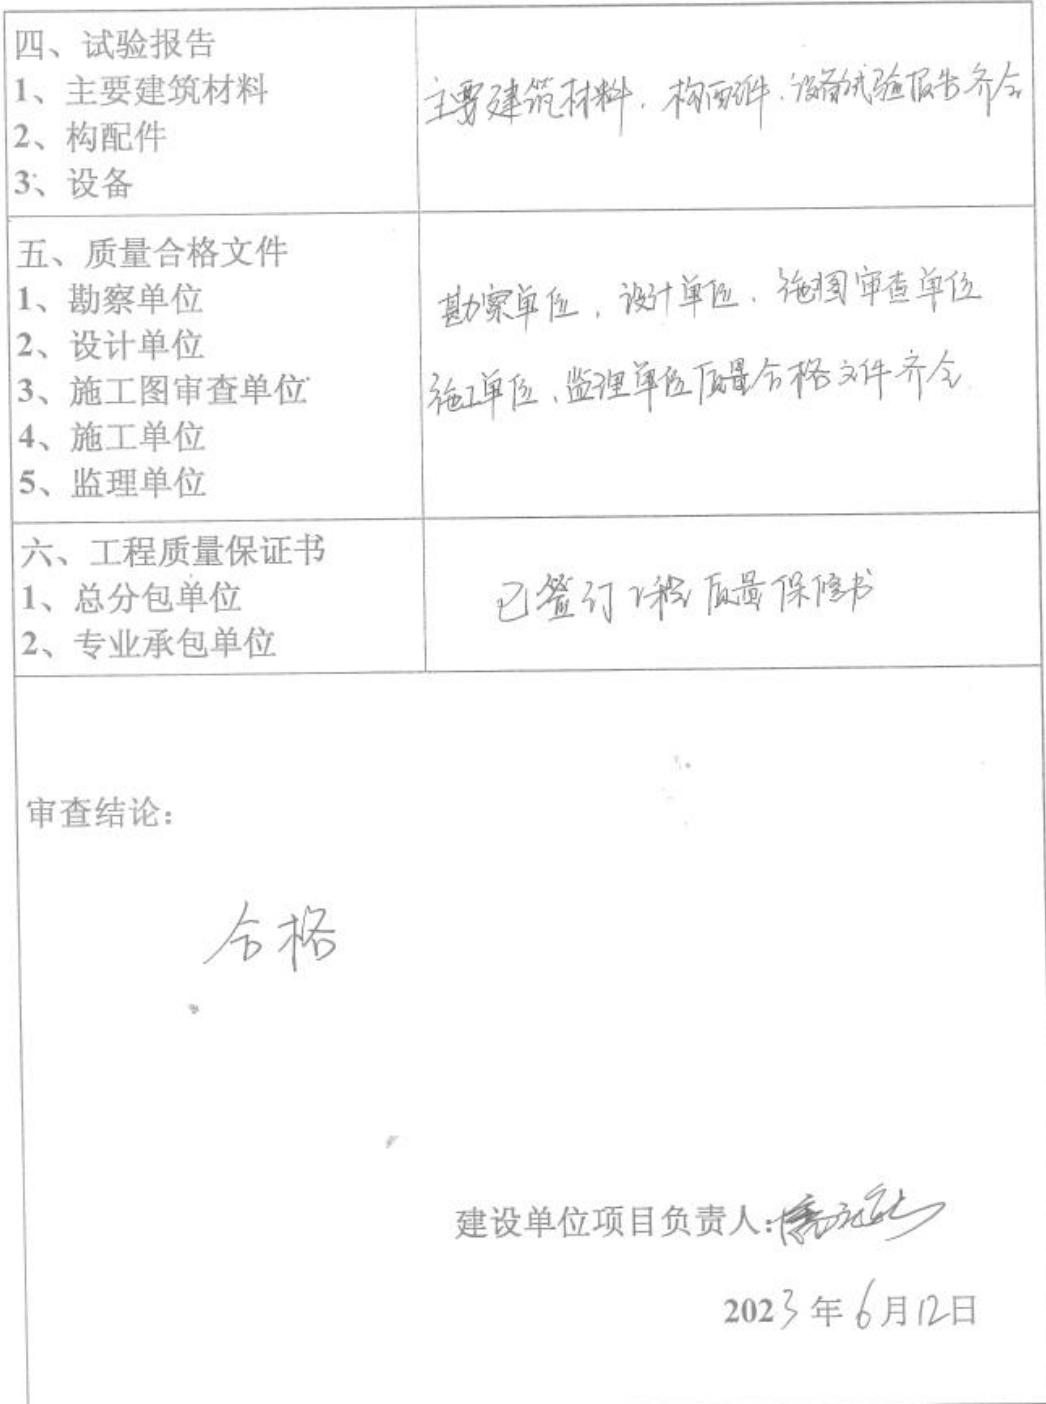 四、试验报告
1、主要建筑材料
2、构配件
3、设备
主要建筑材料、构配件、设备试验报告齐全
五、质量合格文件
1、勘察单位
2、设计单位
3、施工图审查单位
4、施工单位
5、监理单位
勘察单位、设计单位、施图审查单位
施工单位、监理单位质量合格文件齐全
六、工程质量保证书
1、总分包单位
2、专业承包单位
已签订工程质量保修书
审查结论：
合格
建设单位项目负责人：
2023年6月12日